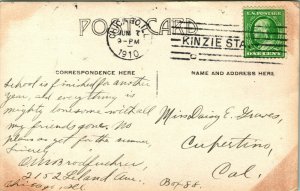 POST CARD
CHICAGO, ILL.
JUN 7
9-PM
1910
KINZIE STA
U.S. POSTAGE
ONE CENT
CORRESPONDENCE HERE
NAME AND ADDRESS HERE
School is finished for another
year and everything is
mighty lonesome with all
my friends gone. No
plans yet for the summer,
Sincerely
2152 Leland Ave
Chicago, Ill.
Miss Daisy E. Graves,
Cupertino,
Cal.
Box 88.